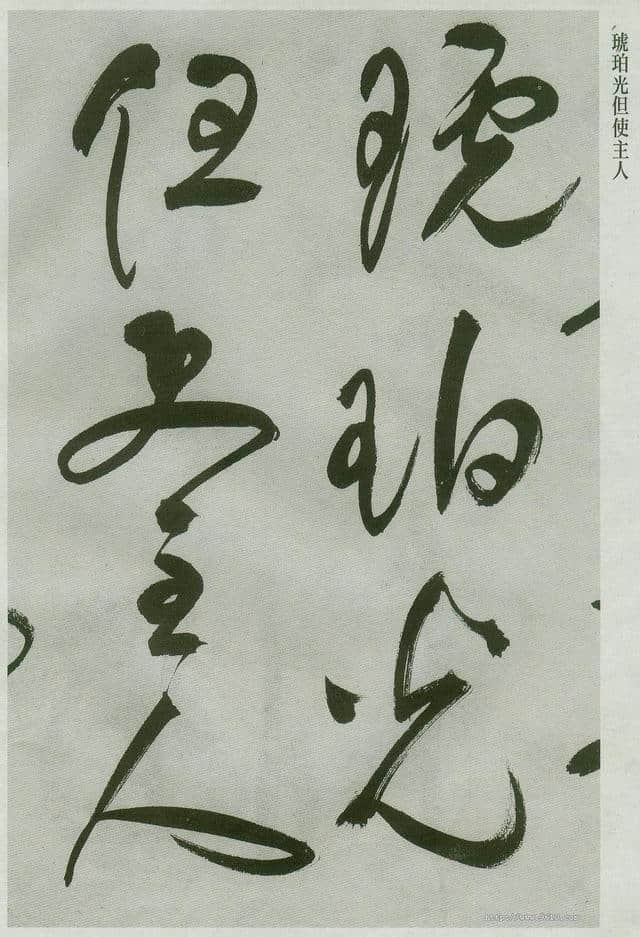 琥珀光但使主人
琥珀光
但使主人